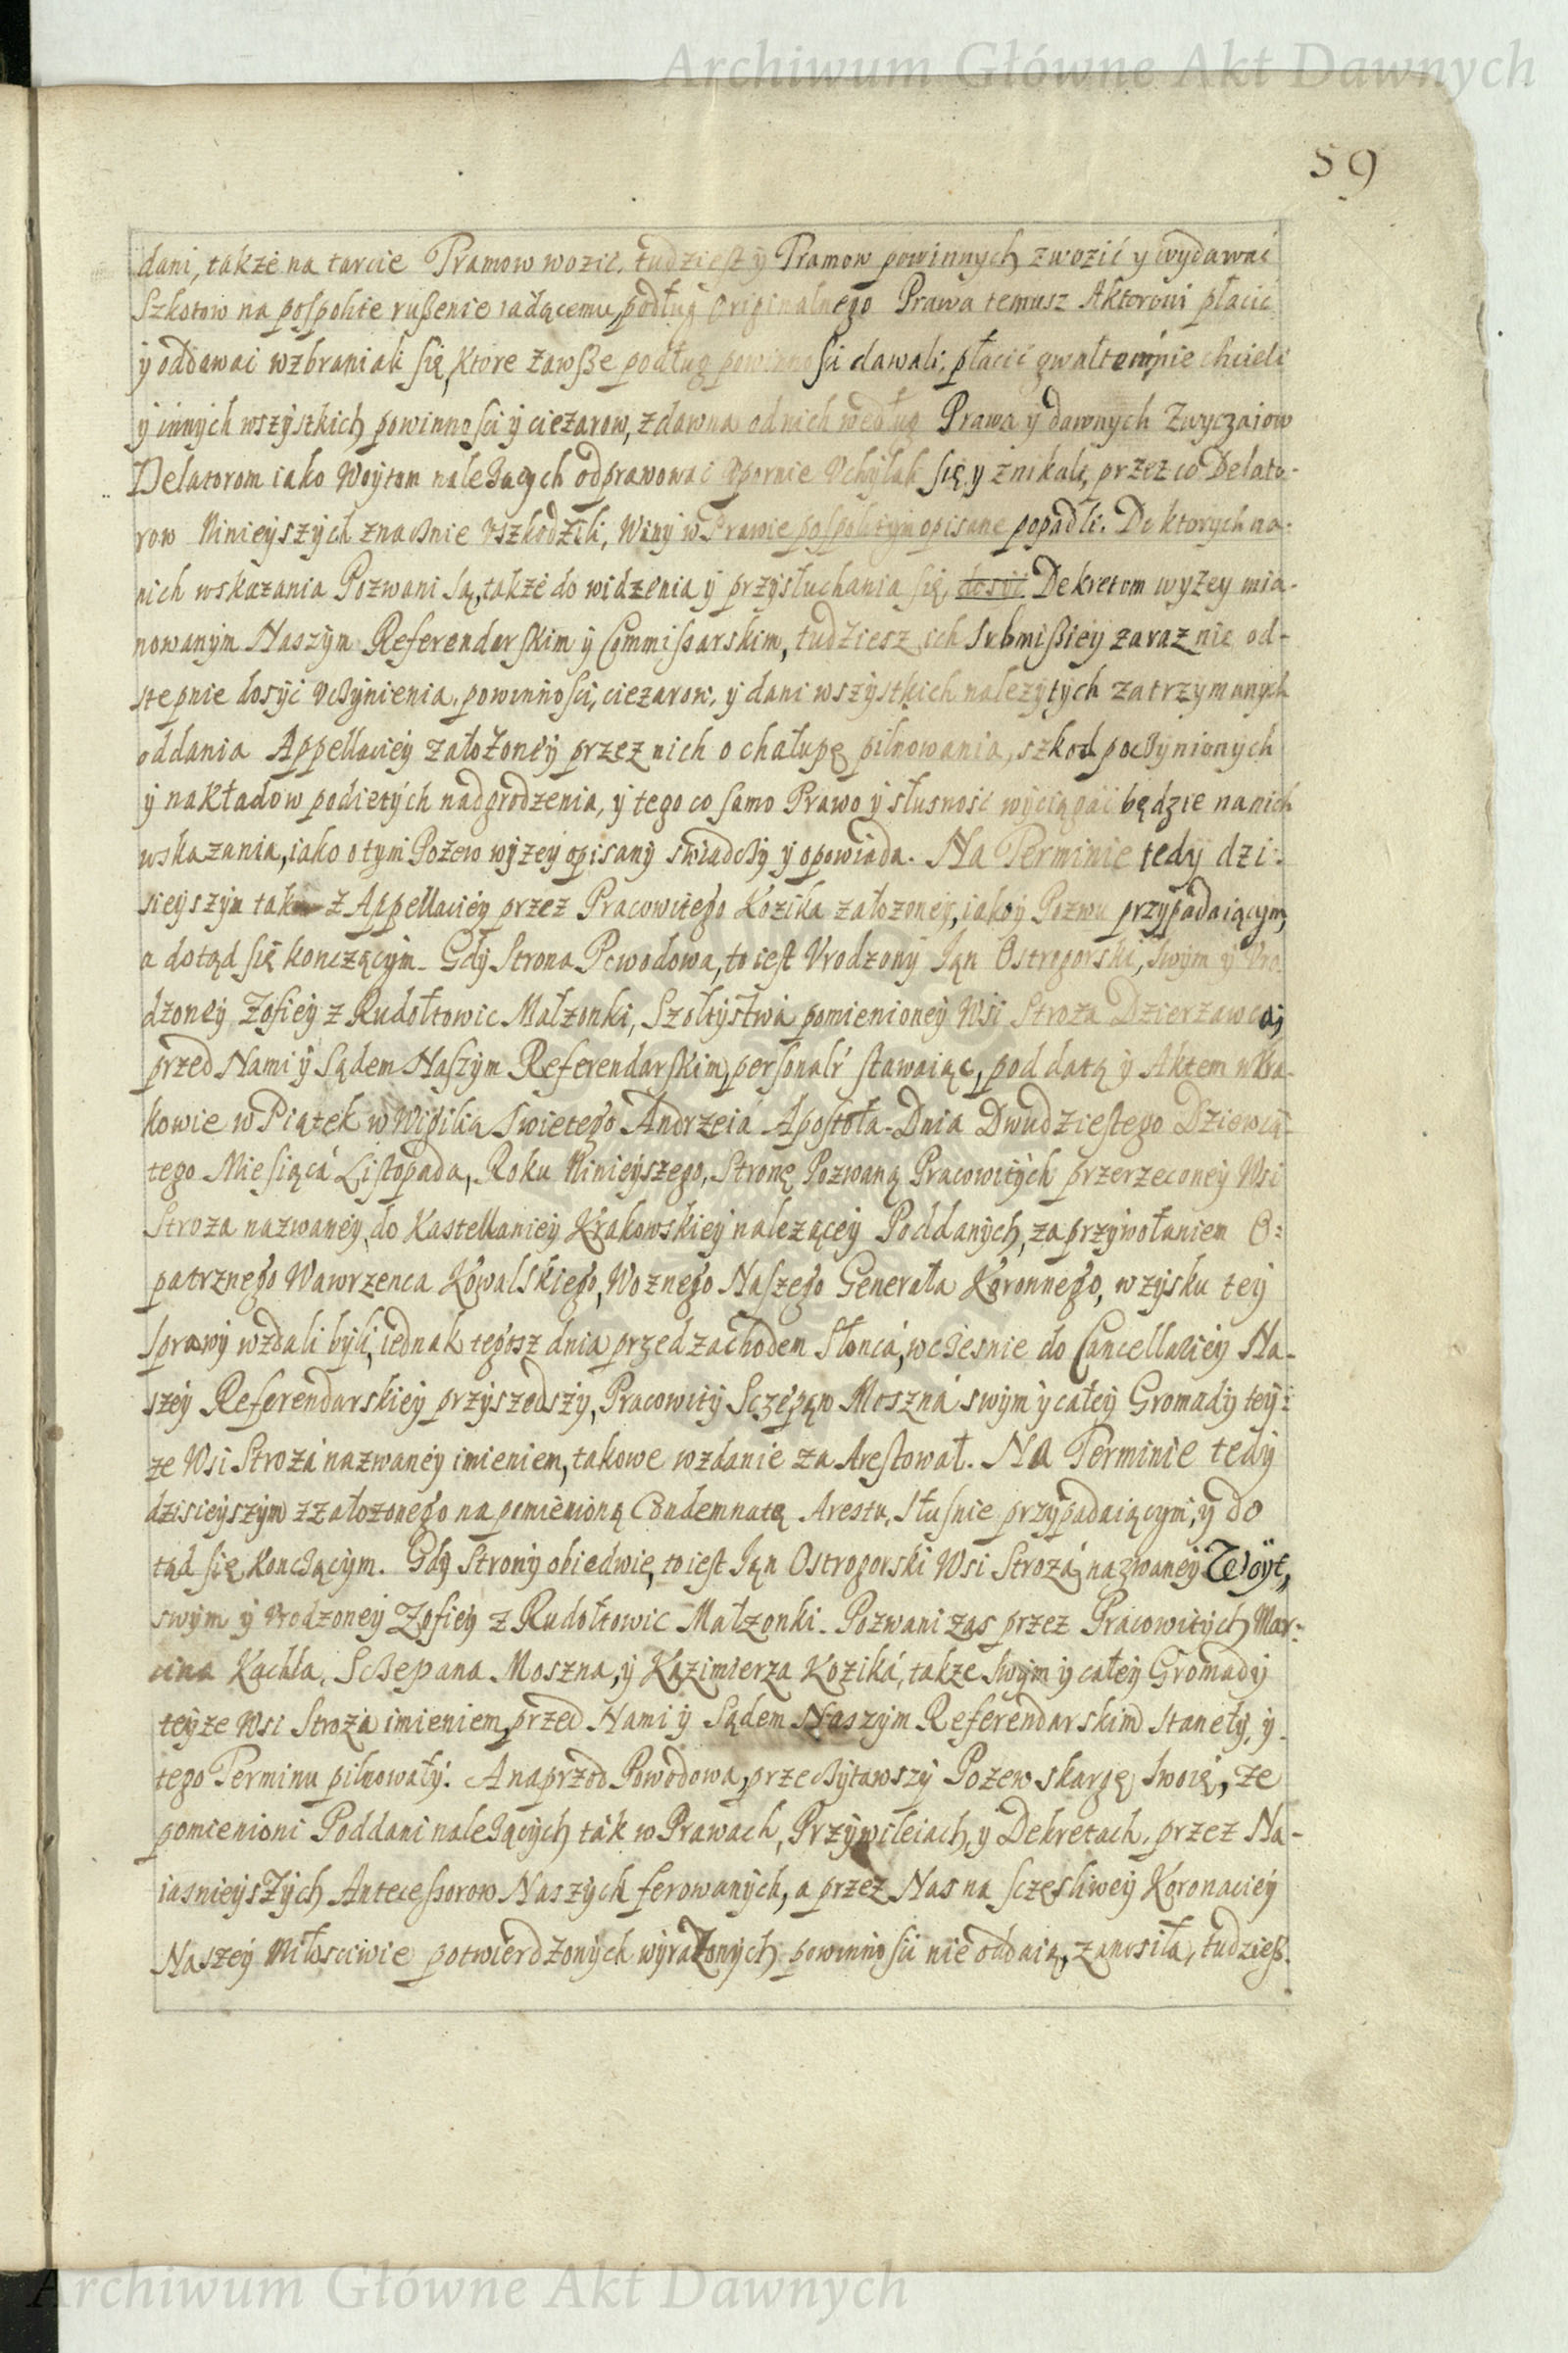 Archiwum Główne Akt Dawnych
59
dani, także na tarcie Tramow wozic, tudziesz y Tramow powinnych zwozić y wydawać
Szkotow na pospolite rußenie iadącemu, podług Originalnego Prawa temusz Aktorowi płacić
y oddawać wzbraniali się, ktore zawsße podług powinności dawali, płacić gwałtem nie chcieli
y innych wszystkich powinności y ciezarow, zdawna od nich według Prawa y dawnych Zwyczaiow
Delatorom iako Woytom należących odprawować Vpornie Vchylali się y znikali, przez co Delato-
row Ninieyszych znacznie Vszkodzili, Winy w Prawie pospolitym opisane popadli. Do ktorych na-
nich wskazania Pozwani są, także do widzenia y przysłuchania się, dosyć Dekretom wyżey mia-
nowanym Naszym Referendarskim y Commissarskim, tudziesz ich Submißiey zaraz nie od-
stepnie dosyć Vczynienia, powinności, ciezarow, y dani wszystkich należytych zatrzymanych
oddania Appellaciey założoney przez nich o chałupę pilnowania, szkod poczynionych
y nakładow podietych nadgrodzenia, y tego co samo Prawo y słusność wyciągać będzie na nich
wskazania, iako o tym Pozew wyżey opisany świadczy y opowiada. Na Terminie tedy dzi-
sieyszym tak z Appellaciey przez Pracowitego Kozika założoney, iako y Pozwu przypadaiącym,
a dotąd się konczącym. Gdy Strona Powodowa, to iest Vrodzony Ian Ostrogorski, swym y Vro-
dzoney Zofiey z Rudołtowic Małzonki, Szołtystwa pomienioney Wsi Stroza Dzierzawca,
przed Nami y Sądem Naszym Referendarskim, personalr stawaiąc, pod datą y Aktem w Kra-
kowie w Piątek w Wigilią Swietego Andrzeia Apostoła Dnia Dwudziestego Dziewią-
tego Miesiąca Listopada, Roku Ninieyszego, Stronę Pozwaną Pracowitych przerzeconey Wsi
Stroza nazwaney, do Kastellaniey Krakowskiey nalezącey Poddanych, za przywołaniem O-
patrznego Wawrzenca Kowalskiego, Woznego Naszego Generała Koronnego, w zysku tey
sprawy wzdali byli, iednak tegosz dnia przed zachodem Słonca, wcześnie do Cancellariey Na-
szey Referendarskiey przyszedszy, Pracowity Sczepan Moszna swym y całey Gromady tey-
ze Wsi Stroza nazwaney imieniem, takowe wzdanie za Arestował. Na Terminie tedy
dzisieyszym z założonego na pomienioną Condemnatę Arestu, słusnie przypadaiącym, y do
tąd się konczącym. Gdy Strony obiedwie, to iest Ian Ostrogorski Wsi Stroza nazwaney Woyt,
swym y Vrodzoney Zofiey z Rudołtowic Małzonki. Pozwani zas przez Pracowitych Mar-
cina Kachla, Sczepana Moszna, y Kazimierza Kozika, takze swym y całey Gromady
teyze Wsi Stroza imieniem, przed Nami y Sądem Naszym Referendarskim stanęły, y
tego Terminu pilnowały. A naprzod Powodowa, przeczytawszy Pozew skargę swoię, ze
pomienioni Poddani należących tak w Prawach, Przywileiach, y Dekretach, przez Na-
iasnieyszych Antecessorow Naszych ferowanych, a przez Nas na sczęsliwey Koronaciey
Naszey Miłosciwie potwierdzonych wyrażonych powinnosci nie oddaią, zanosiła, tudzieß.
Archiwum Główne Akt Dawnych